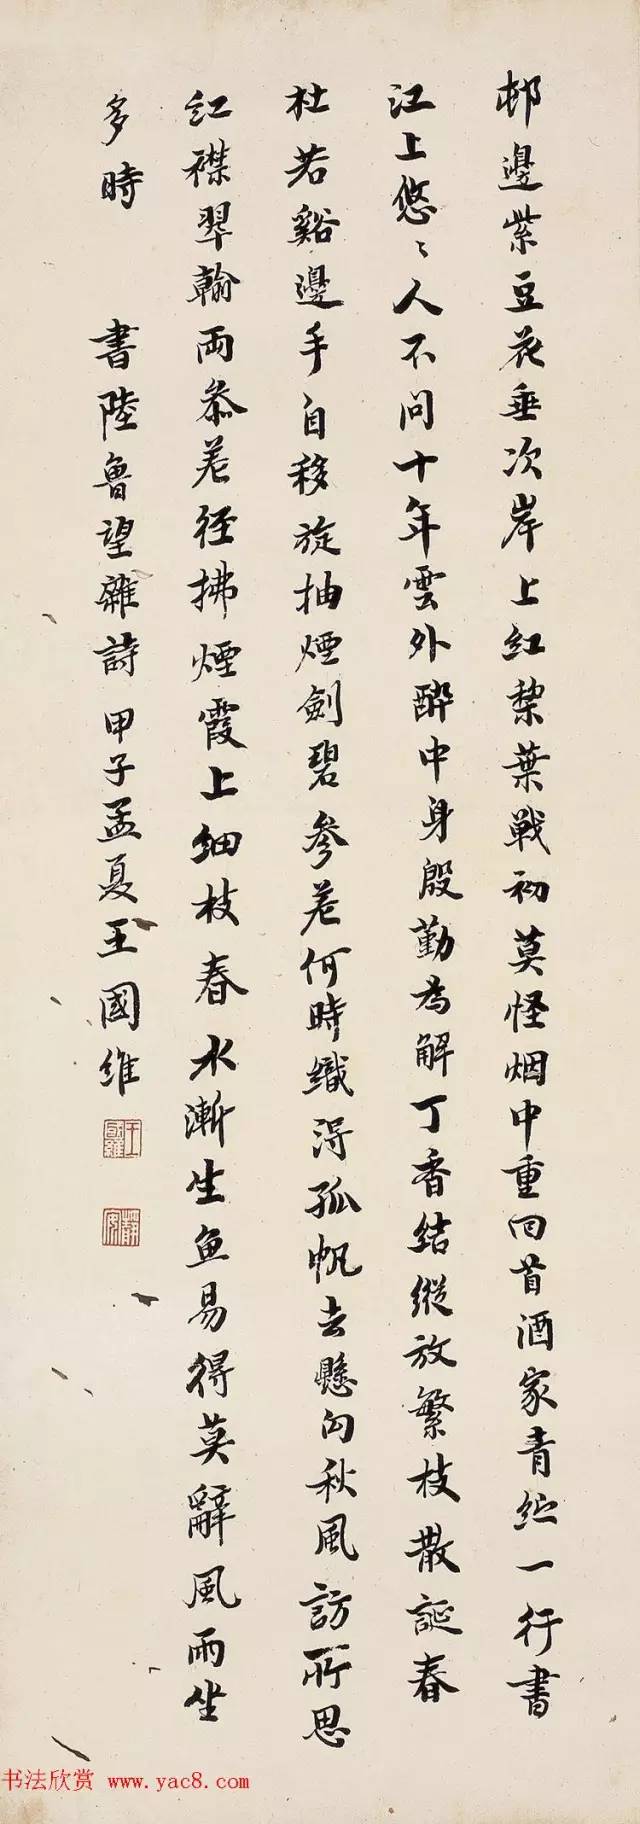 邨邊紫豆花垂次岸上紅棃葉戰初莫怪烟中重回首酒家青紵一行書
江上悠〻人不問十年雲外醉中身殷勤為解丁香結縱放繁枝散誕春
杜若谿邊手自移旋抽煙劍碧參差何時織得孤帆去懸向秋風訪所思
紅襟翠翰兩叅差徑拂煙霞上細枝春水漸生魚易得莫辭風雨坐
多時
書陸魯望雜詩甲子孟夏王國維
王國維
靜安
书法欣赏 www.yac8.com